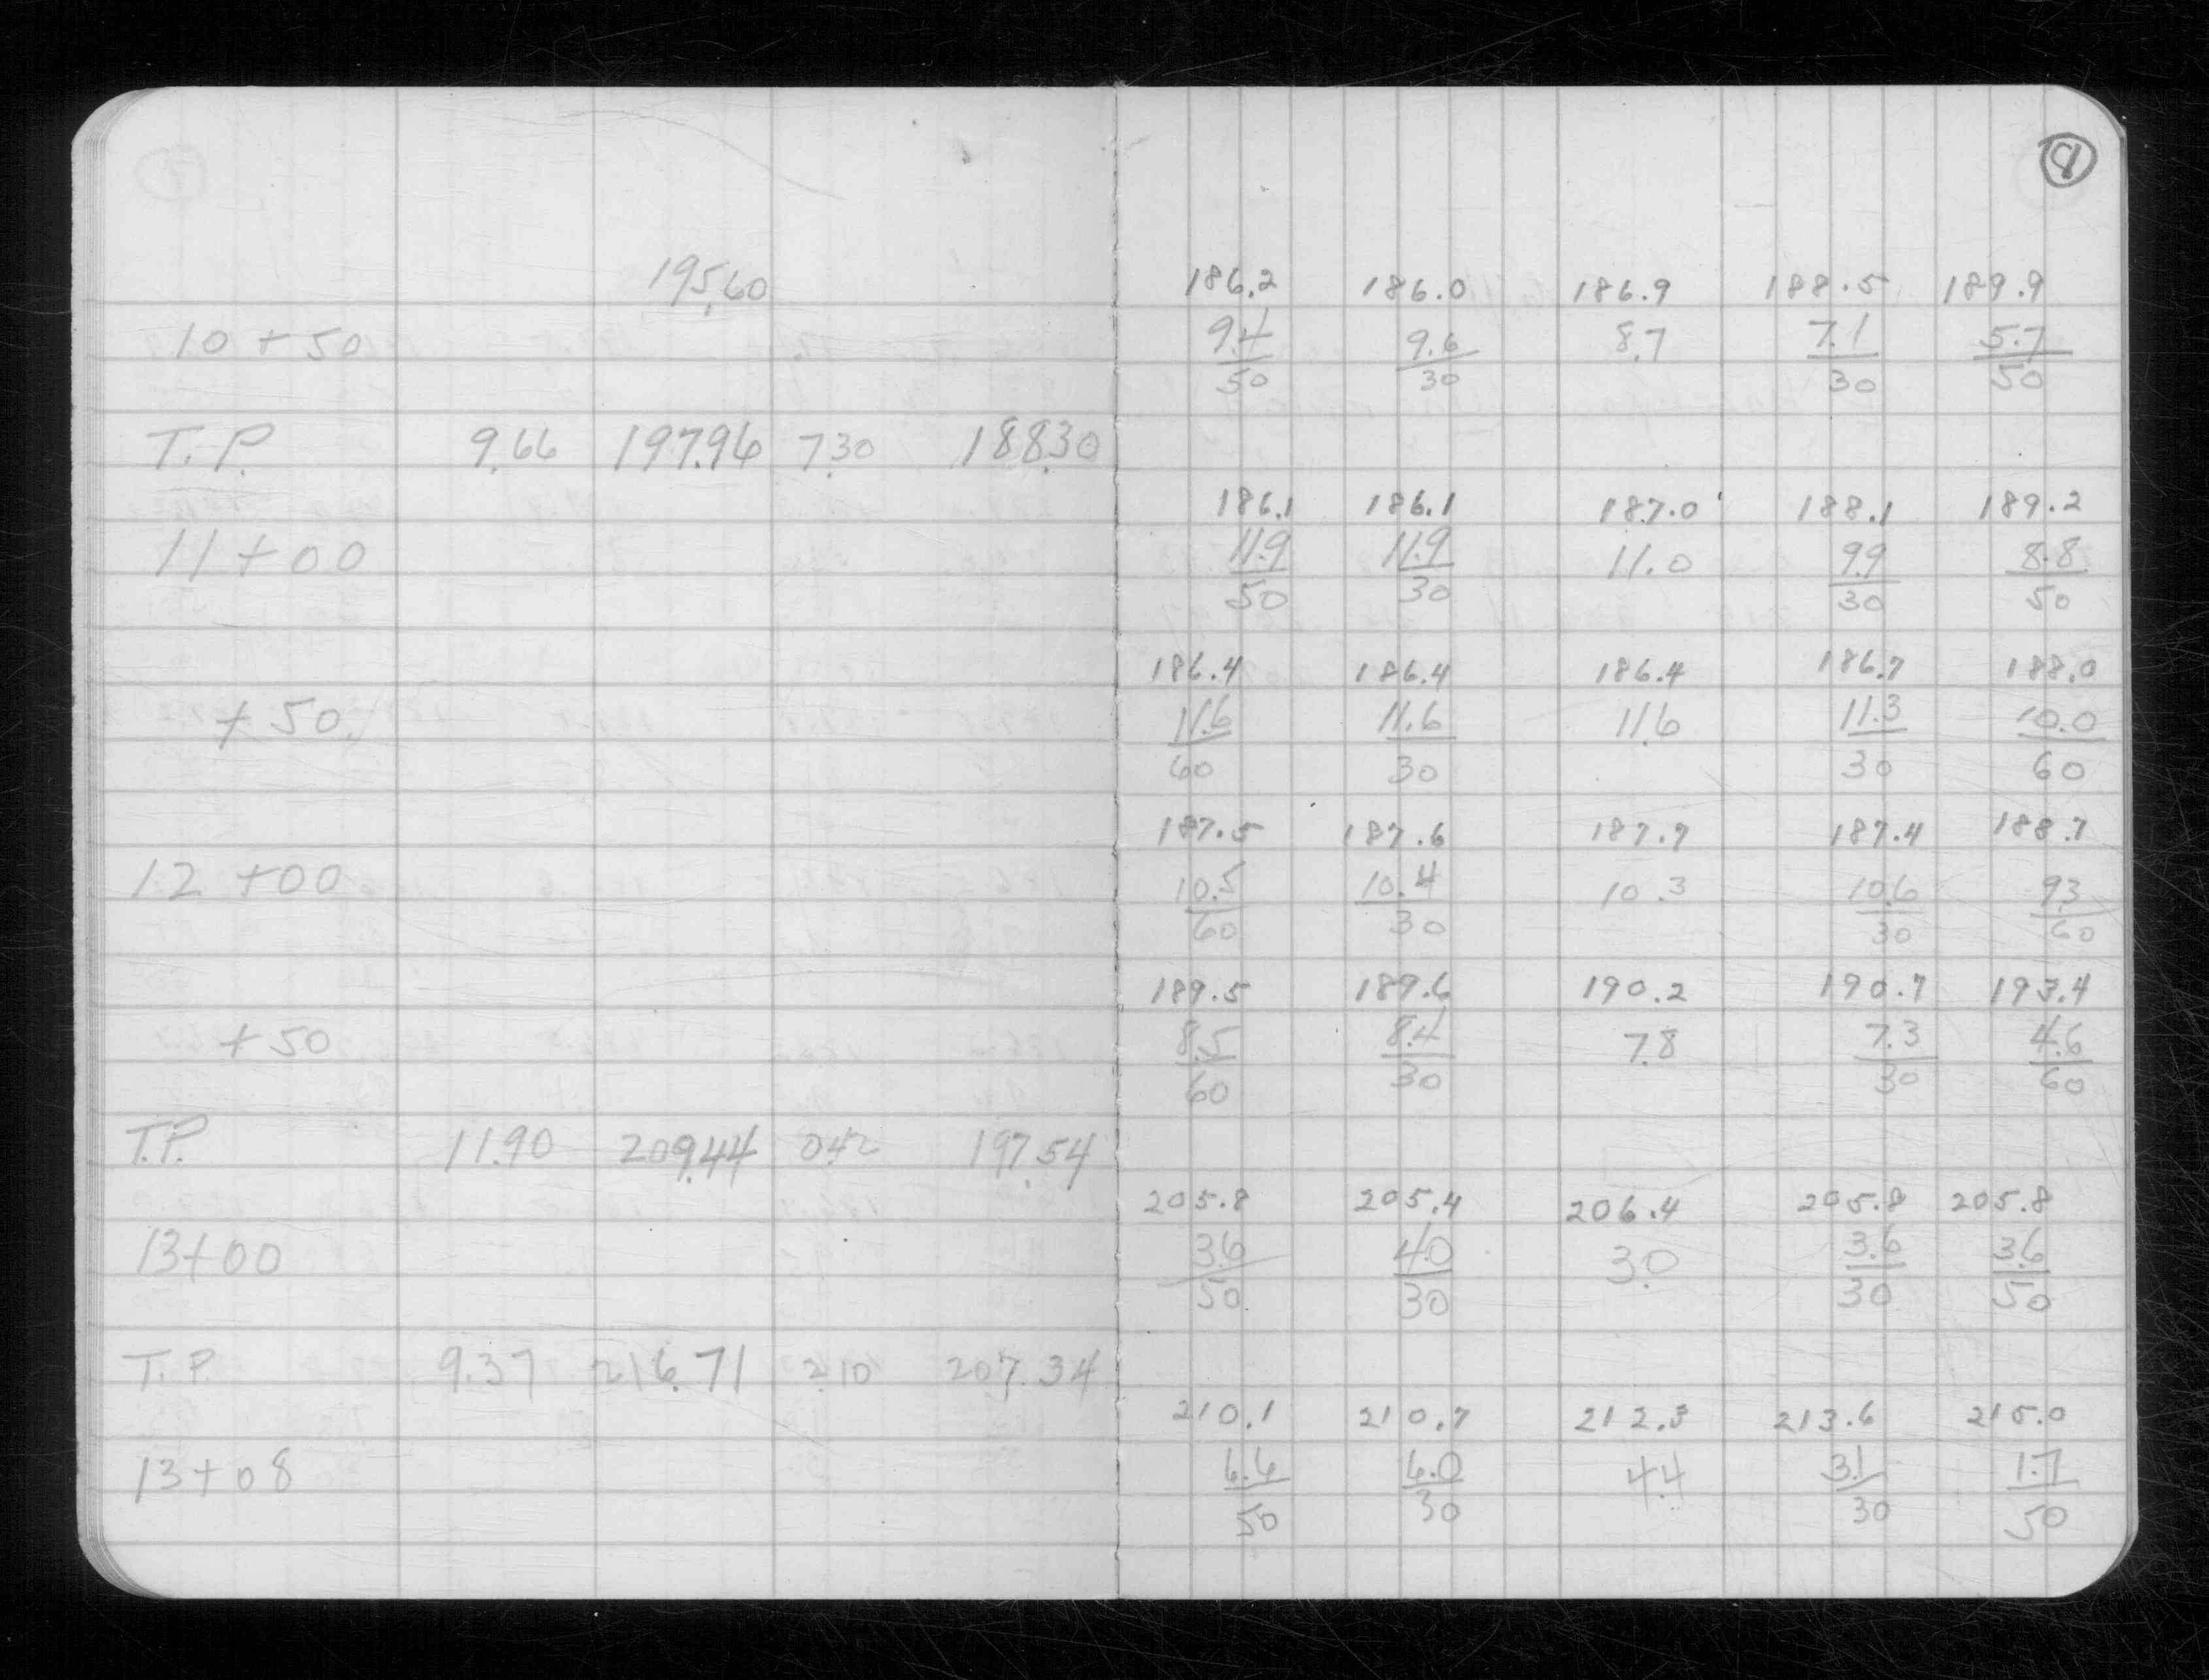 8
195.60 186.2 186.0 186.9 188.5 189.9
10+50 9.4/50 9.6/30 8.7 7.1/30 5.7/50
T.P. 9.66 197.96 7.30 188.30
186.1 186.1 187.0 188.1 189.2
11+00 11.9/50 11.9/30 11.0 9.9/30 8.8/50
186.4 186.4 186.4 186.7 188.0
+50 11.6/60 11.6/30 11.6 11.3/30 10.0/60
187.5 187.6 187.7 187.4 188.7
12+00 10.5/60 10.4/30 10.3 10.6/30 9.3/60
189.5 189.6 190.2 190.7 193.4
+50 8.5/60 8.4/30 7.8 7.3/30 4.6/60
T.P. 11.90 209.44 0.42 197.54
205.8 205.4 206.4 205.8 205.8
13+00 3.6/50 4.0/30 3.0 3.6/30 3.6/50
T.P. 9.37 216.71 2.10 207.34
210.1 210.7 212.3 213.6 215.0
13+08 6.6/50 6.0/30 4.4 3.1/30 1.7/50